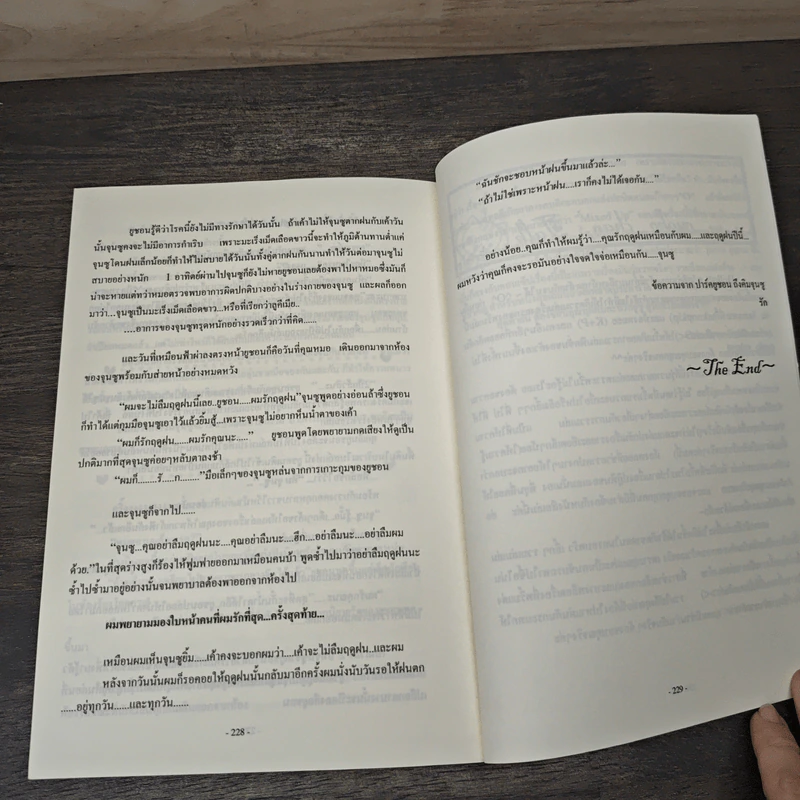 ยูชอนรู้ดีว่าโรคนี้ยังไม่มีทางรักษาได้วันนั้น ถ้าเค้าไม่ให้จุนซูตากฝนกับเค้าวัน
นั้นจุนซูคงจะไม่มีอาการกำเริบ เพราะมะเร็งเม็ดเลือดขาวนี้จะทำให้ภูมิต้านทานต่ำแค่
จุนซูโดนฝนเล็กน้อยก็ทำให้ไม่สบายได้วันนั้นทั้งคู่ตากฝนกันนานทำให้วันต่อมาจุนซูไม่
สบายอย่างหนัก 1 อาทิตย์ผ่านไปจุนซูก็ยังไม่หายยูชอนเลยต้องพาไปหาหมอซึ่งมันก็
น่าจะหายแต่ทว่าหมอตรวจพบอาการผิดปกติบางอย่างในร่างกายของจุนซู และผลก็ออก
มาว่า...จุนซูเป็นมะเร็งเม็ดเลือดขาว...หรือที่เรียกว่าลูคีเมีย..
....อาการของจุนซูทรุดหนักอย่างรวดเร็วกว่าที่คิด......
และวันที่เหมือนฟ้าผ่าลงตรงหน้ายูชอนก็คือวันที่คุณหมอ เดินออกมาจากห้อง
ของจุนซูพร้อมกับส่ายหน้าอย่างหมดหวัง
“ผมจะไม่ลืมฤดูฝนนี้เลย..ยูชอน.....ผมรักฤดูฝน”จุนซูพูดอย่างอ่อนล้าซึ่งยูชอน
ก็ทำได้แต่กุมมือจุนซูเอาไว้แล้วยิ้มสู้...เพราะจุนซูไม่อยากหื่นน้ำตาของเค้า
“ผมก็รักฤดูฝน......ผมรักคุณนะ.....” ยูชอนพูดโดยพยายามกดเสียงให้ดูเป็น
ปกติมากที่สุดจุนซูค่อยๆหลับตาลงช้า
“ผมก็........รั.....ก........”มือเล็กๆของจุนซูหล่นจากการเกาะกุมของยูชอน
และจุนซูก็จากไป......
“จุนซู...คุณอย่าลืมฤดูฝนนะ....คุณอย่าลืมนะ....ฮึก....อย่าลืมนะ....อย่าลืมผม
ด้วย.”ในที่สุดร่างสูงก็ร้องไห้ฟูมฟายออกมาเหมือนคนบ้า พูดซ้ำไปมาว่าอย่าลืมฤดูฝนนะ
ซ้ำไปซ้ำมาอยู่อย่างนั้นจนพยาบาลต้องพาออกจากห้องไป
ผมพยายามมองใบหน้าคนที่ผมรักที่สุด...ครั้งสุดท้าย...
เหมือนผมเห็นจุนซูยิ้ม.....เค้าคงจะบอกผมว่า....เค้าจะไม่ลืมฤดูฝน..และผม
หลังจากวันนั้นผมก็รอคอยให้ฤดูฝนนั้นกลับมาอีกครั้งผมนั่งนับวันรอให้ฝนตก
......อยู่ทุกวัน......และทุกวัน......
- 228 -
“ฉันชักจะชอบหน้าฝนขึ้นมาแล้วล่ะ...”
“ถ้าไม่ใช่เพราะหน้าฝน....เราก็คงไม่ได้เจอกัน....”
อย่างน้อย..คุณก็ทำให้ผมรู้ว่า....คุณรักฤดูฝนเหมือนกับผม....และฤดูฝนปีนี้...
ผมหวังว่าคุณก็คงจะรอมันอย่างใจจดใจจ่อเหมือนกัน....จุนซู
ข้อความจาก ปาร์คยูชอน ถึงคิมจุนซู
รัก
~The End~
- 229 -